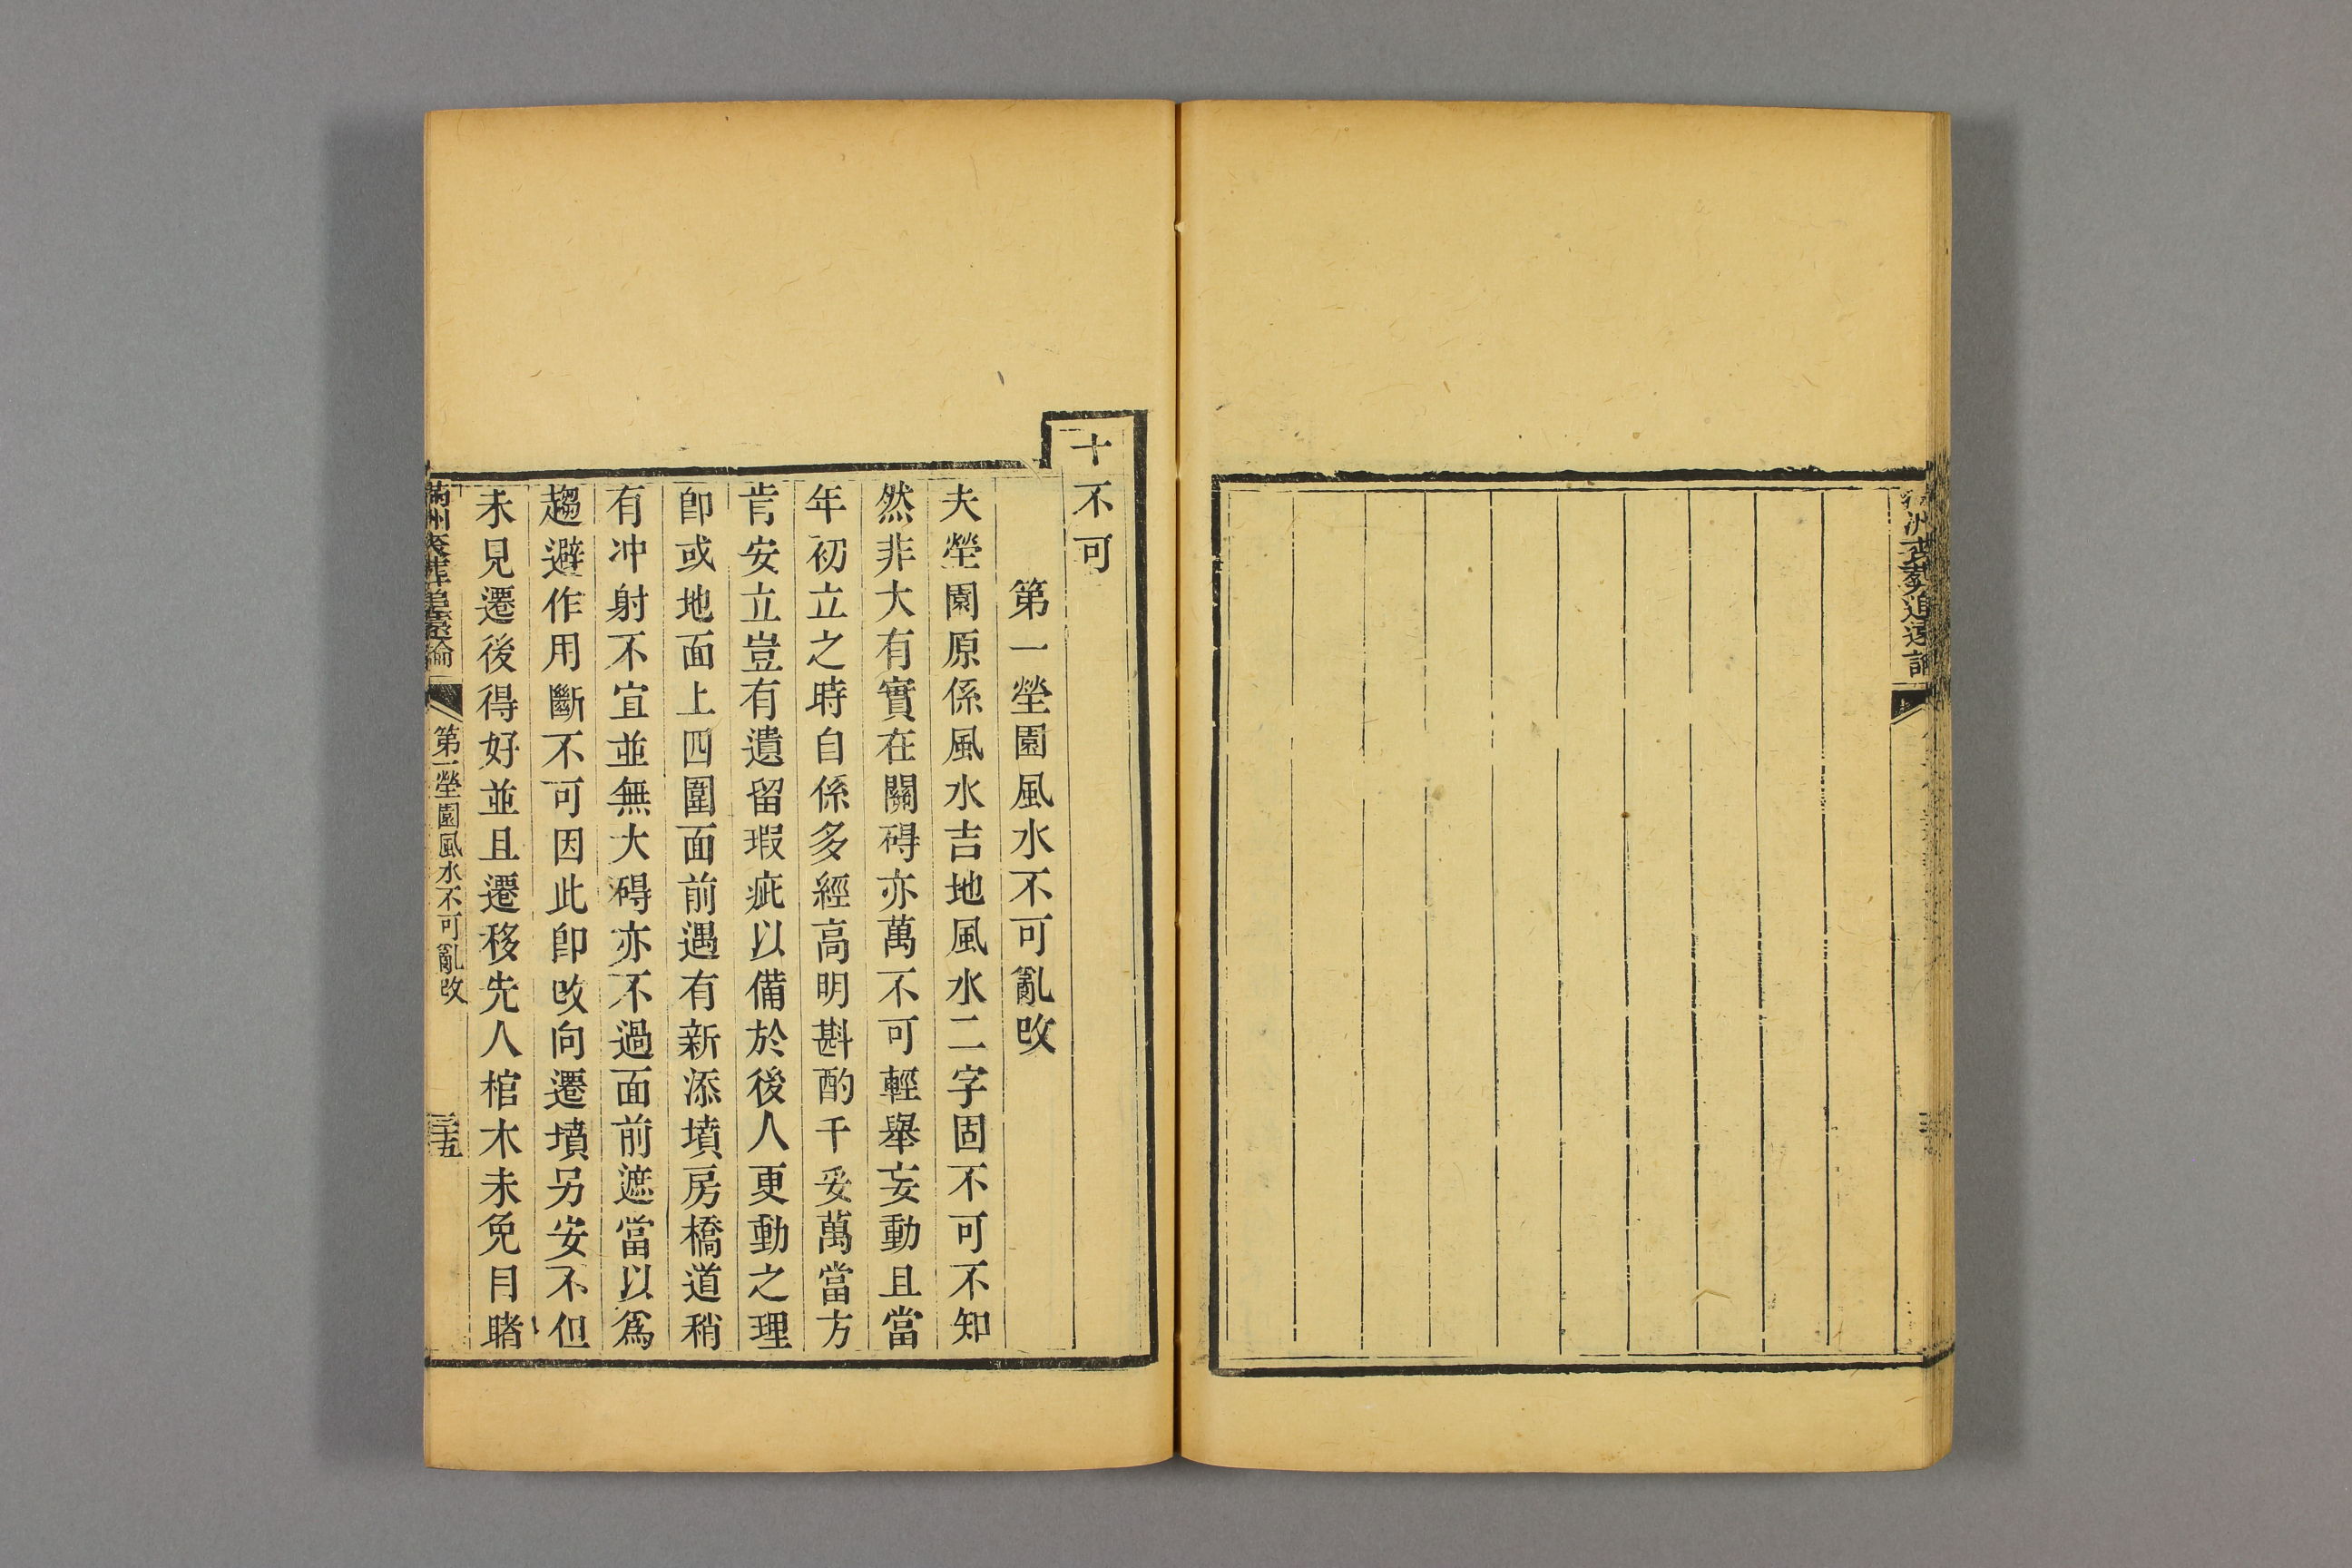 十不可
第一塋園風水不可亂改
夫塋園原係風水吉地風水二字固不可不知
然非大有實在關碍亦萬不可輕舉妄動且當
年初立之時自係多經高明斟酌千妥萬當方
肯安立豈有遺留瑕疵以備於後人更動之理
卽或地面上四圍面前遇有新添墳房橋道稍
有冲射不宜並無大碍亦不過面前遮當以爲
趨避作用斷不可因此卽改向遷墳另安不但
未見遷後得好並且遷移先人棺木未免目睹
第一塋園風水不可亂改
三十五